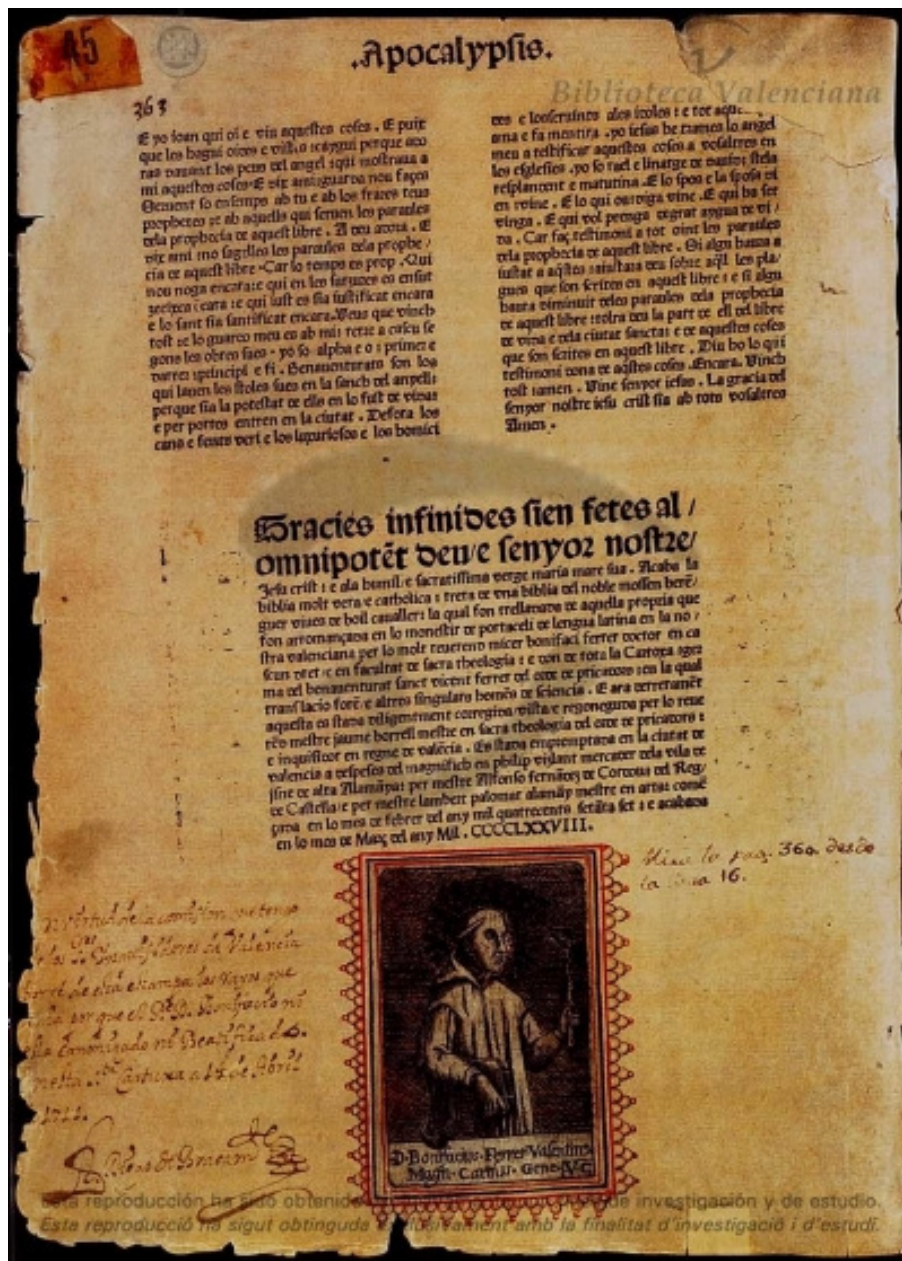 45
.Apocalypsis.
Biblioteca Valenciana
363
E yo ioan qui oi e viu aquestes coses . E puix
que les hagui oides e vistes caygui perque ado
ras dauant los peus del angel qui mostraua a
mi aquestes coses E dix ami guarda nou façes
Seruent so ensemps ab tu e ab los frares teus
prophetes e ab aquells qui seruen les paraules
dela prophecia de aquest libre . A deu adora . E
dix ami no sagelles les paraules dela prophe /
cia de aquest libre . Car lo temps es prop . Qui
nou noga encara e qui en les sutzures es ensut
zeixca encara e qui iust es sia iustificat encara
e lo sant sia santificat encara. Veus que vinch
tost e lo guardo meu es ab mi retre a cascu se
gons les obres sues . yo so alpha e o : primer e
darrer principi e fi . Benauenturats son los
qui lauen les stoles sues en la sanch del anyell:
perque sia la potestat de ells en lo fust de vida
e per portes entren en la ciutat . Defora los
cans e fents veri e los luxuriosos e los homici
des e los seruints ales ydoles : e tot
ama e fa mentira . yo iesus he trames lo angel
meu a testificar aquestes coses a vosaltres en
les esglesies . yo so rael e linatge de dauid: stela
resplandent e matutina . E lo spos e la sposa di
en vine . E lo qui ou diga vine . E qui ha set
vinga . E qui vol prenga de grat aygua de vi /
da . Car faç testimoni a tot oint les paraules
dela prophecia de aquest libre . Si algu haura a
iustat a aq̃stes : aiustara deu sobre aq̃ll les pla/
gues que son scrites en aquest libre : e si algu
haura diminuit deles paraules dela prophecia
de aquest libre : tolra deu la part de ell del libre
de vida e dela ciutat sancta : e de aquestes coses
que son scrites en aquest libre . Diu ho lo qui
testimoni dona de aq̃stes coses . Encara . Vinch
tost : amen . Vine senyor iesus . La gracia del
senyor nostre iesu crist sia ab tots vosaltres
Amen .
Gracies infinides sien fetes al /
omnipotẽt deu/e senyor nostre/
Jesu crist : e ala humil/e sacratissima verge maria mare sua . Acaba la
biblia molt vera e catholica : treta de vna biblia del noble mossen berẽ/
guer viues de boil caualler: la qual fon trelladada de aquella propria que
fon arromançada en lo monestir de portaceli de lengua latina en la no /
stra valenciana per lo molt reuerend micer bonifaci ferrer doctor en ca
scun dret e en facultat de sacra theologia : e don de tota la Cartoxa germa
ma del benauenturat sanct vicent ferrer del orde de pricadors : en la qual
translacio forẽ e altres singulars homẽs de sciencia . E ara derreramẽt
aquesta es stada diligentment corregida/vista e regoneguda per lo reue
rẽd mestre jaume borrell mestre en sacra theologia del orde de pricadors :
e inquisidor en regne de valẽcia . Es stada empremptada en la ciutat de
valencia a despeses del magnifich en philip vizlant mercader dela vila de
jsne de alta Alamãya: per mestre Alfonso fernãdez de Cordoua del Reg/
de Castella/e per mestre lambert palomar alamãy mestre en arts: comẽ
çada en lo mes de febrer del any mil quatrecents setãta set : e acabada
en lo mes de Març del any Mil . CCCCLXXVIII.
pag. 360. desde
la linea 16.
virtud de la comission que tengo
de los Inquisidores de Valencia
borré de esta estampa los rayos que
tenia porque el Bonifacio no
esta Canonizado ni Beatificado.
nesta Cartuxa a 14 de Abril
1711.
D. Bonifacius Ferrer Valentinus
Magn. Cartus. Gene.
Esta reproducción ha sido obtenida de investigación y de estudio.
Esta reproducció ha sigut obtinguda exclusivament amb la finalitat d'investigació i d'estudi.